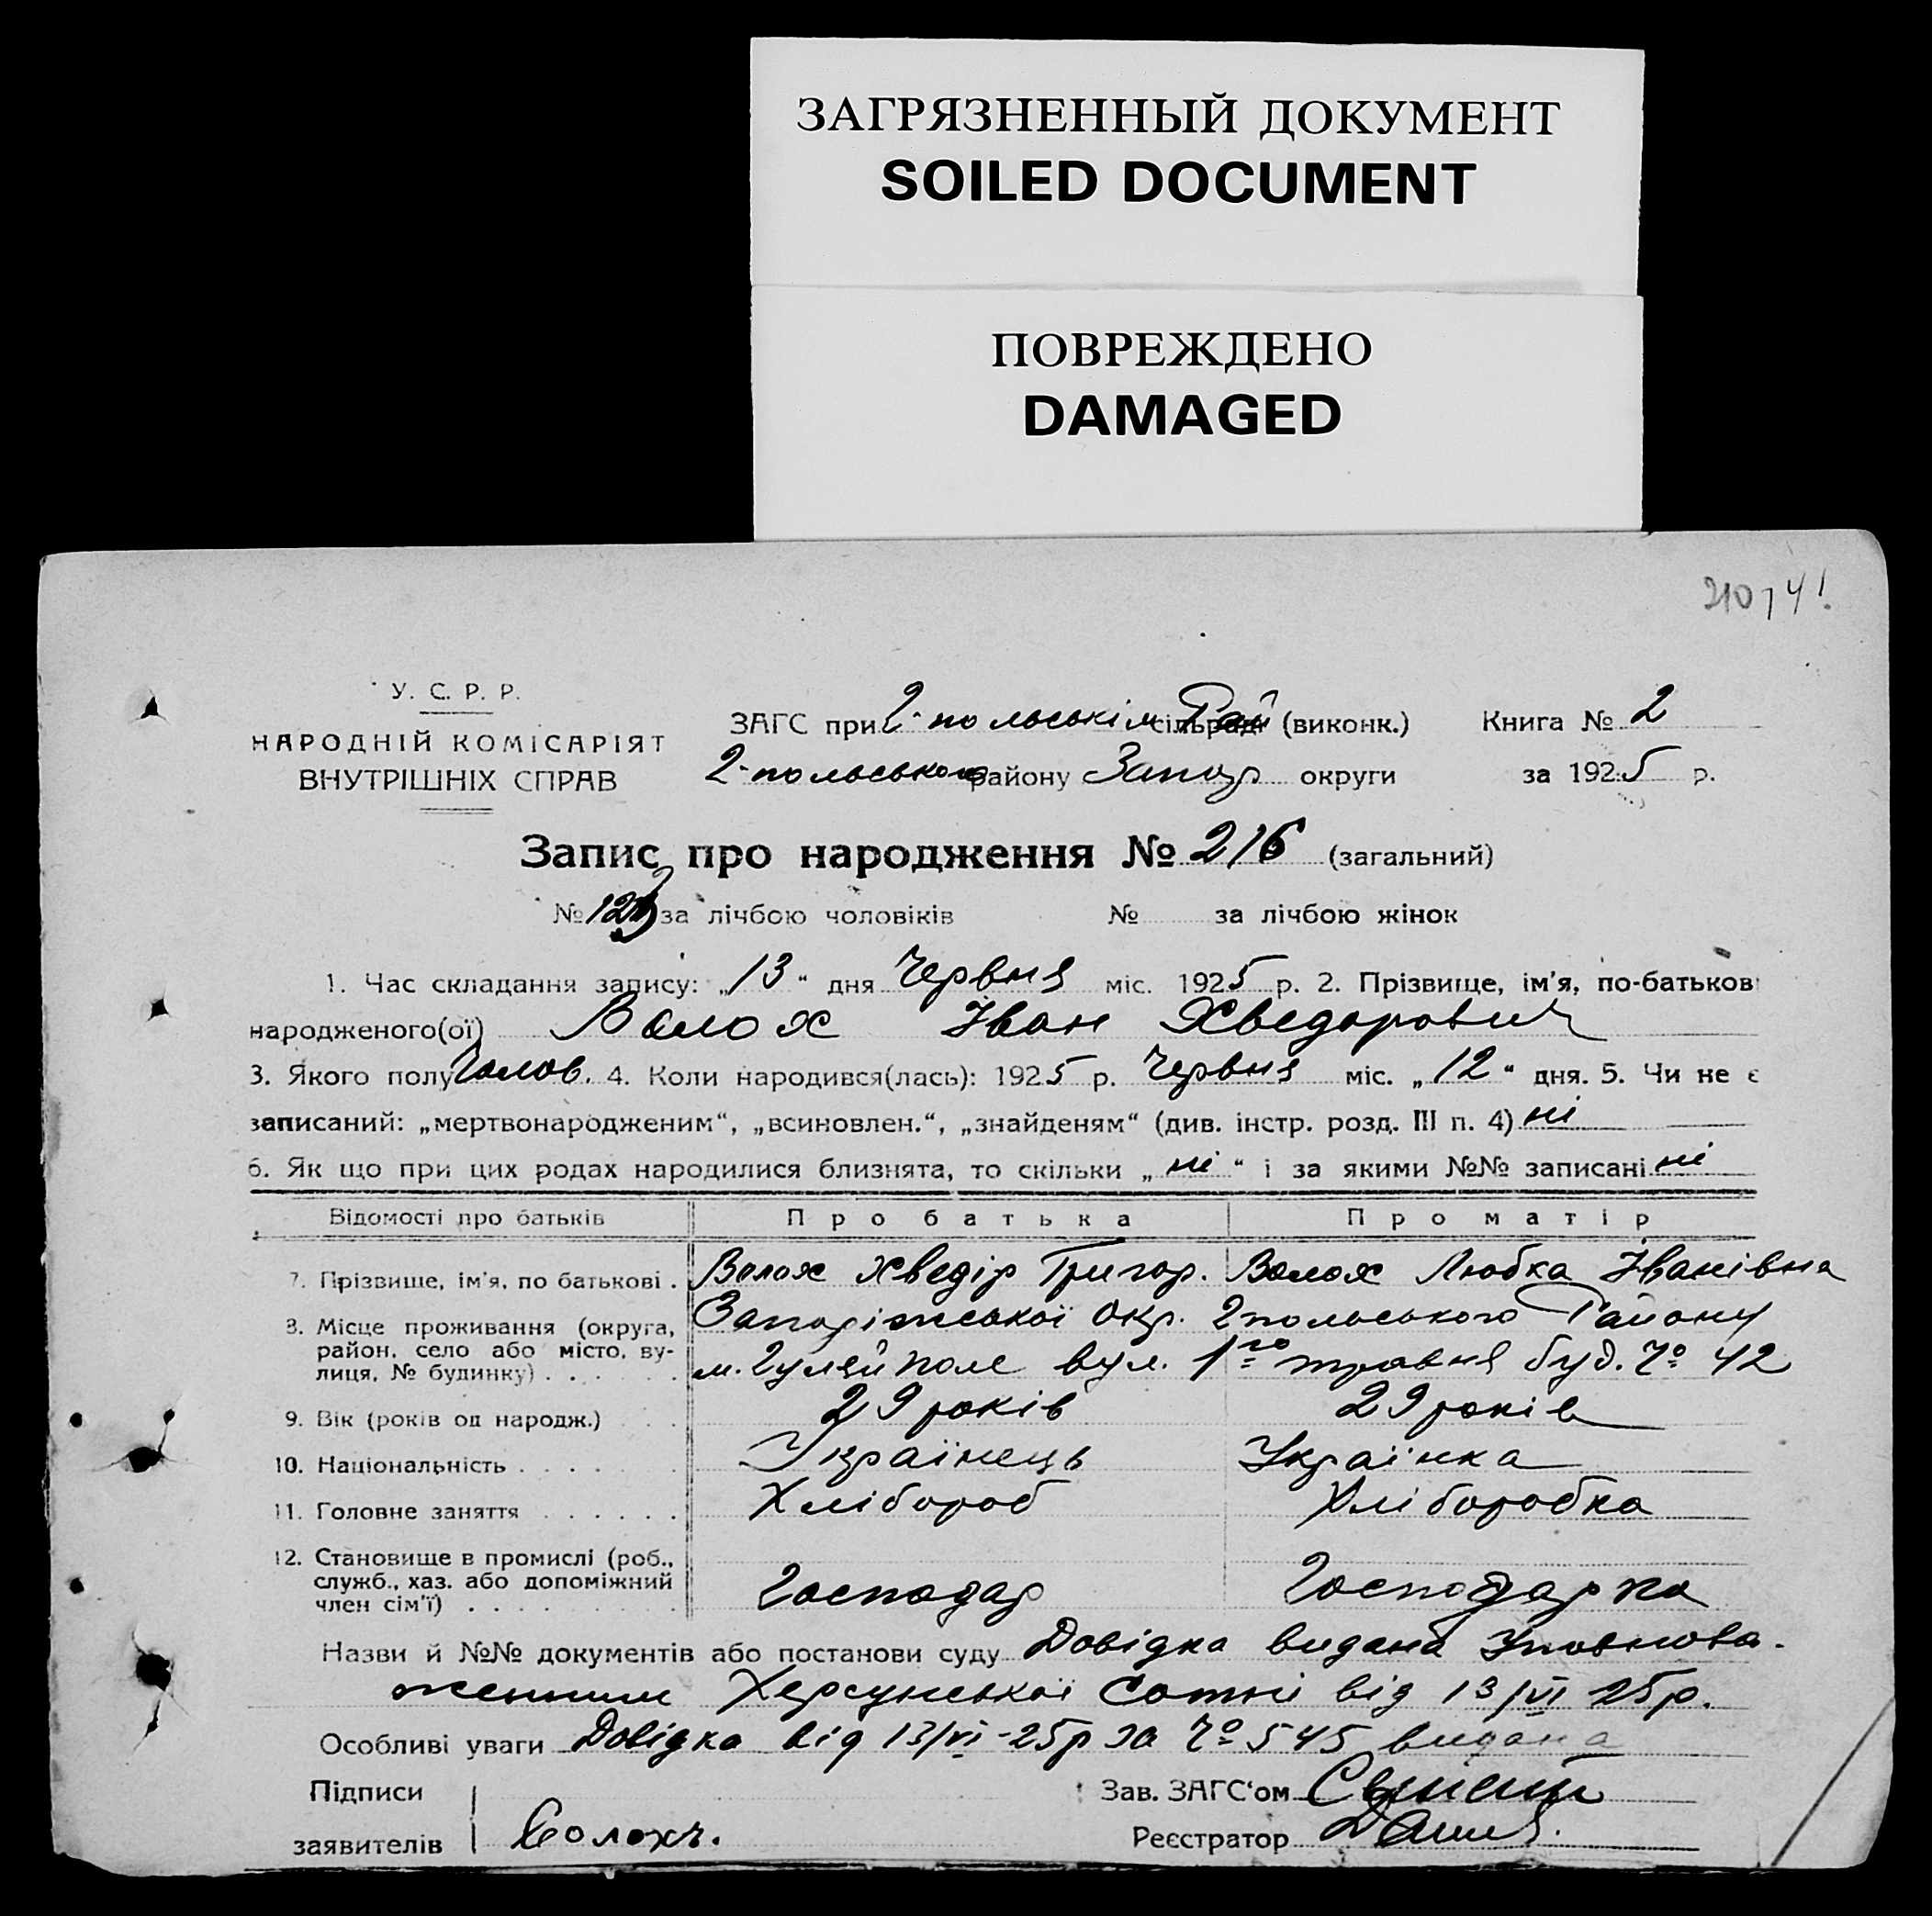 ЗАГРЯЗНЕННЫЙ ДОКУМЕНТ
SOILED DOCUMENT
ПОВРЕЖДЕНО
DAMAGED
У. С. Р. Р.
НАРОДНІЙ КОМІСАРІЯТ
ВНУТРІШНІХ СПРАВ
ЗАГС при Г-польськім сільраді Рай (виконк.) Книга № 2
Г-польського району Запор округи за 1925 р.
Запис про народження № 216 (загальний)
№ за лічбою чоловіків № за лічбою жінок
1. Час складання запису: „13“ дня Червня міс. 1925 р. 2. Прізвище, ім'я, по-батькові
народженого(ої) Волох Іван Хведорович
3. Якого полу Чолов. 4. Коли народився(лась): 1925 р. Червня міс. „12“ дня. 5. Чи не є
записаний: „мертвонародженим“, „всиновлен.“, „знайденям“ (див. інстр. розд. III п. 4) ні
6. Як що при цих родах народилися близнята, то скільки „ні“ і за якими №№ записані ні
Відомості про батьків Про батька Про матір
7. Прізвище, ім'я, по батькові . Волох Хведір Григор. Волох Любка Іванівна
8. Місце проживання (округа, район, село або місто, вулиця, № будинку) . . . . . . Запоріжської Окр. Гпольського Району
м. Гуляй поле вул. 1го травня буд. № 42
9. Вік (років од народж.) . . . 29 років 29 років
10. Національність . . . . . . Українець Українка
11. Головне заняття . . . . . . Хлібороб Хліборобка
12. Становище в промислі (роб., служб., хаз. або допоміжний член сім'ї) . . . . . . . . Господар Господарка
Назви й №№ документів або постанови суду Довідка видана Уповнова-
женним Херсунської Сотні від 13/VI 25р.
Особливі уваги Довідка від 13/VI-25р за № 545 видана
Підписи
заявителів Волохъ.
Зав. ЗАГС'ом
Реєстратор